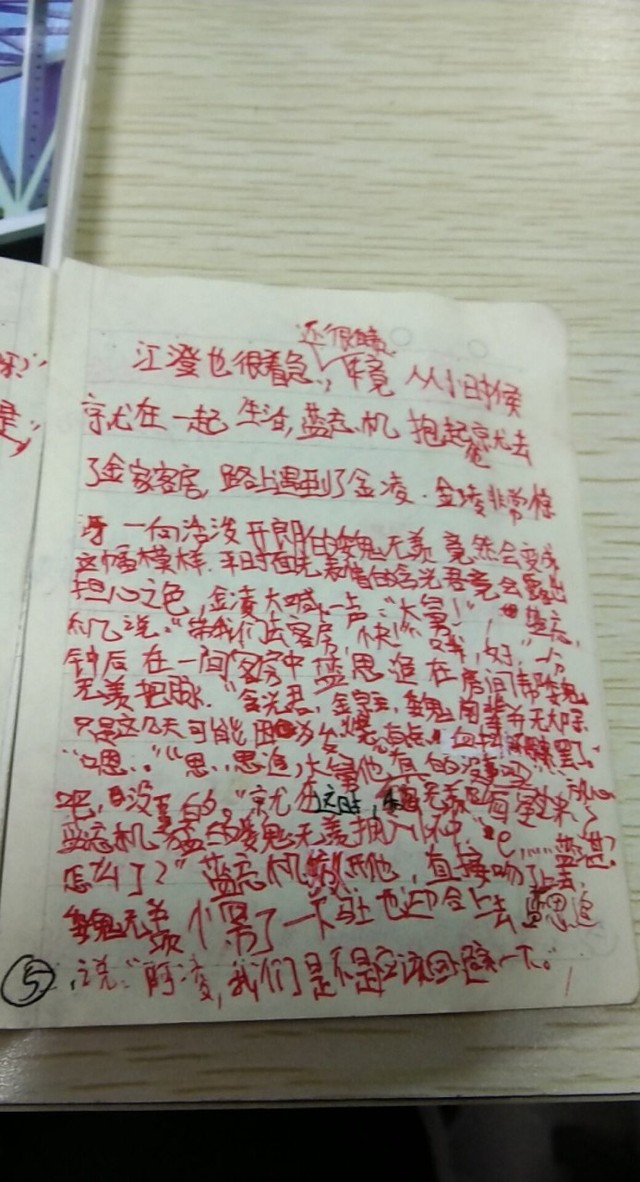 江澄也很着急，还很自责，毕竟 从小时候
就在一起生活，蓝忘机 抱起就去
了金家客房，路上遇到了金凌．金凌非常惊
讶 一向活泼开朗的魏无羡 竟然会变成
这幅模样．平时面无表情的含光君竟会露出
担心之色，金凌大喊一声：“大舅！”，蓝忘
机说：“带我们去客房，快！”“哦，好，”一分
钟后 在一间客房中 蓝思追 在 房间帮魏
无羡把脉．“含光君，金宗主，魏前辈并无大碍
只是这几天可能因为发烧
“嗯．．”“思．．思追，大舅他真的没事吗”
吧，没事的．”就在这时，魏无羡 醒来了
蓝忘机 魏无羡抱入怀中 “e，蓝湛？
怎么了？”蓝忘机 他，直接吻了上去，
魏无羡 了一下 也迎合上去 蓝思追
说：“阿凌，我们是不是应该回避一下。”
⑤